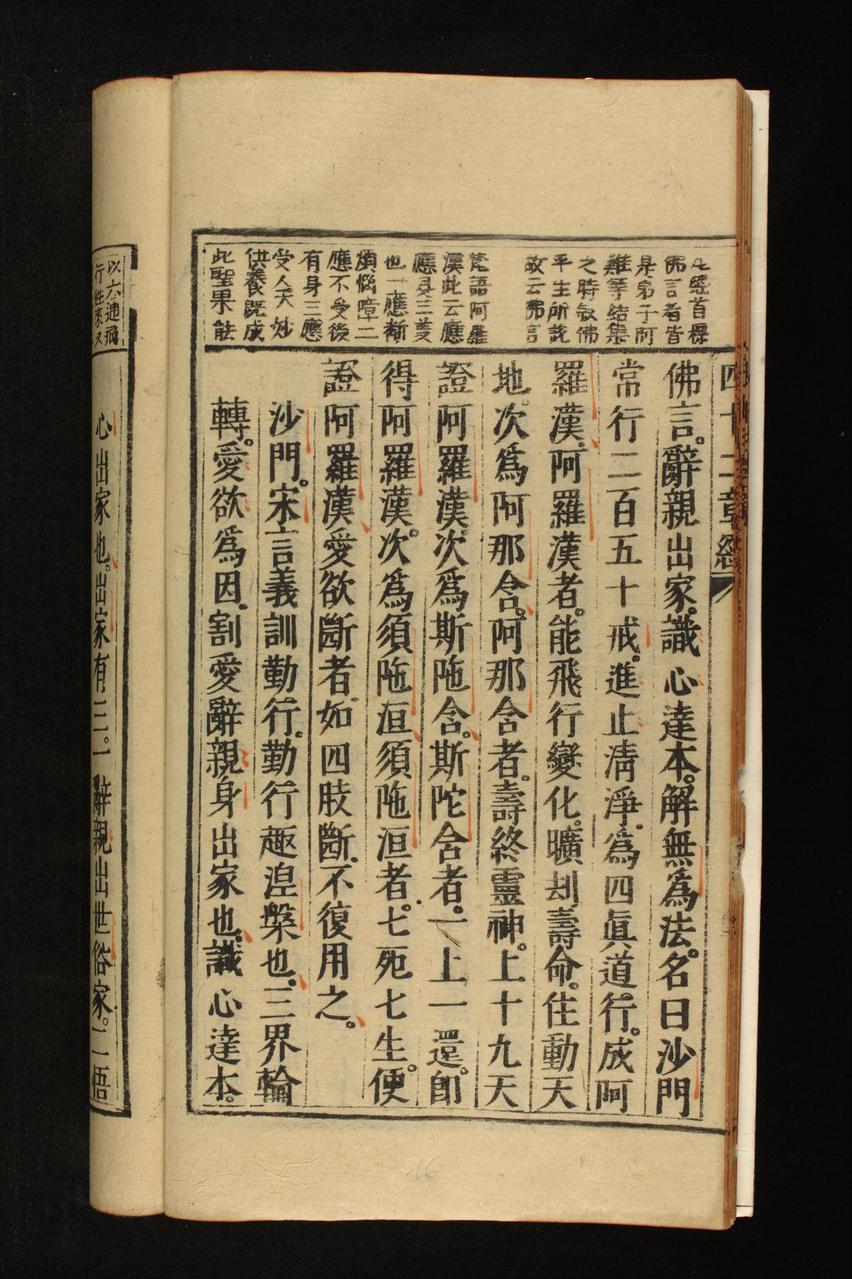 四十二章經
佛言。辭親出家。識心達本。解無為法。名曰沙門
常行二百五十戒。進止清淨。為四真道行。成阿
羅漢。阿羅漢者。能飛行變化。曠刧壽命。住動天
地。次為阿那含。阿那含者。壽終靈神。上十九天
證阿羅漢。次為斯陁含。斯陀含者。一上一還。即
得阿羅漢。次為須陁洹。須陁洹者。七死七生。便
證阿羅漢。愛欲斷者。如四肢斷。不復用之。
沙門。宋言義訓勤行。勤行趣涅槃也。三界輪
轉。愛欲為因。割愛辭親。身出家也。識心達本。
經首標
佛言者皆
是弟子阿
難等結集
之時敘佛
平生所說
故云佛言
梵語阿羅
漢此云應
應具三義
也一應斷
煩惱障二
應不受後
有身三應
受人天妙
供養既成
此聖果能
以六通飛
行往來
心出家也。出家有三。一辭親出世俗家。二悟
16